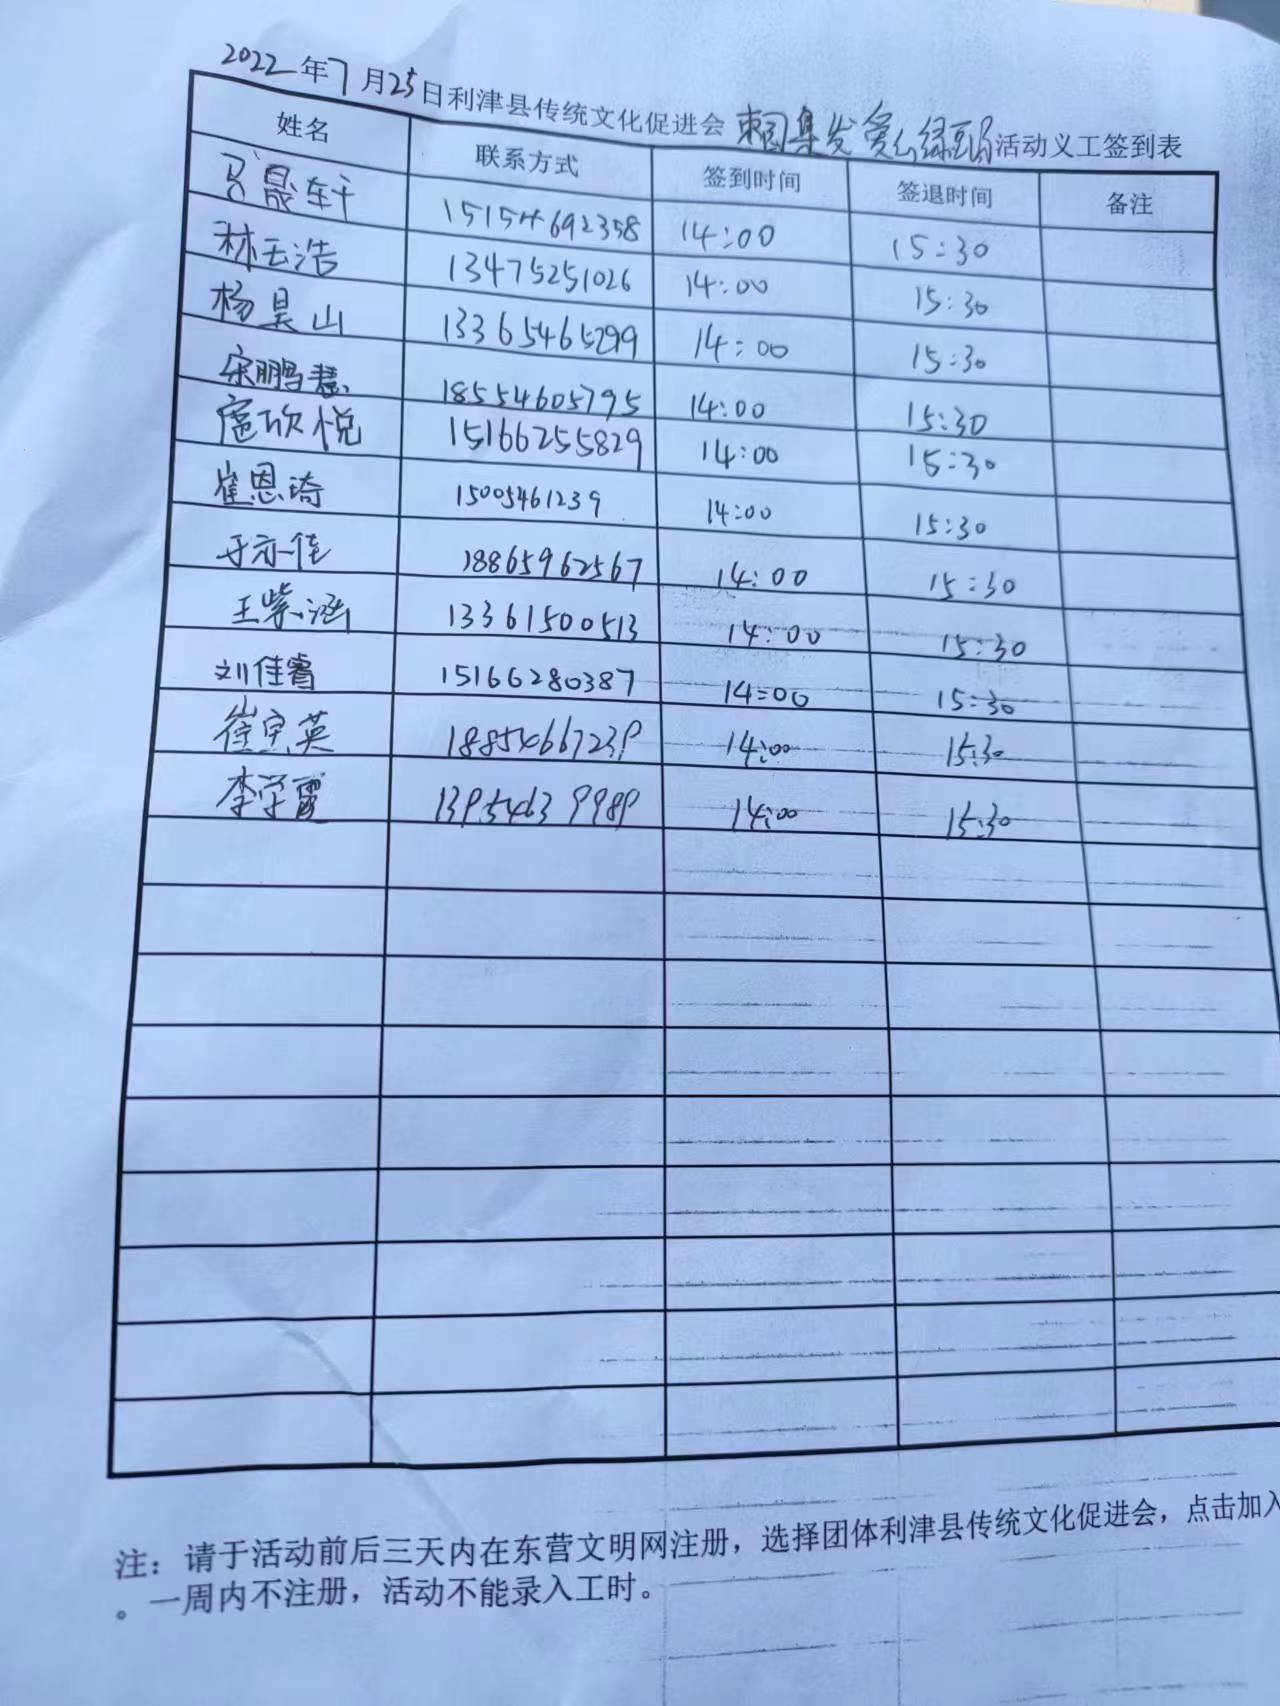 2022年7月25日利津县传统文化促进会 枣园集发爱心绿豆汤活动义工签到表
姓名 联系方式 签到时间 签退时间 备注
晟轩 15154692358 14:00 15:30
林玉浩 13475251026 14:00 15:30
杨昊山 13365465299 14:00 15:30
宋鹏慧 18554605795 14:00 15:30
扈欣悦 15166255829 14:00 15:30
崔恩琦 15005461239 14:00 15:30
于亦佳 18865962567 14:00 15:30
王紫涵 13361500513 14:00 15:30
刘佳睿 15166280387 14:00 15:30
崔宝英 18854667239 14:00 15:30
李学霞 13954639989 14:00 15:30
注：请于活动前后三天内在东营文明网注册，选择团体利津县传统文化促进会，点击加入
。一周内不注册，活动不能录入工时。